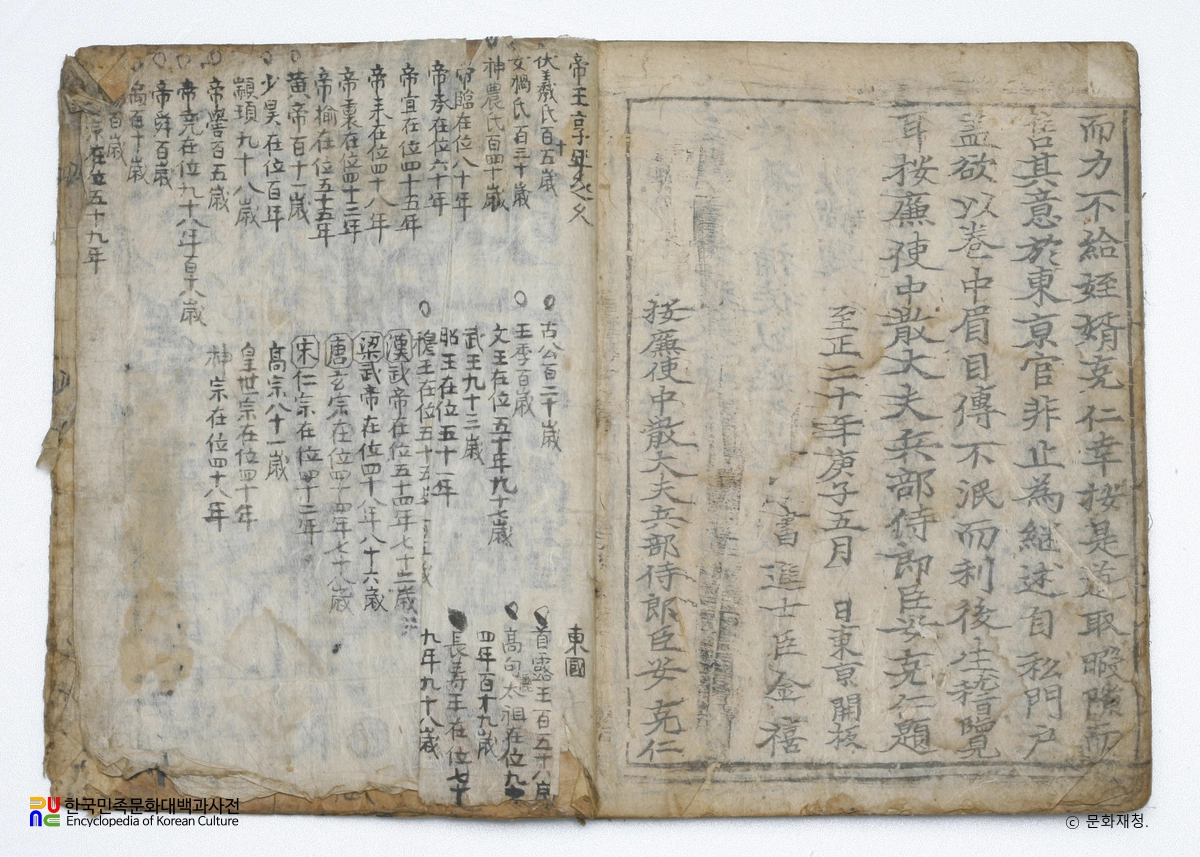 而力不給姪婿克仁幸按是道取暇隙而
其意於東京官非止為継述自私門戶
盖欲以卷中眉目傳不泯而利後生稽覽
耳按廉使中散大夫兵部侍郎臣安克仁題
至正二十年庚子五月 日東京開板
書進士臣金禧
按廉使中散大夫兵部侍郎臣安克仁
帝王享年
伏羲氏百十五歲
女媧氏百三十歲
神農氏百四十歲
帝臨在位八十年
帝承在位六十年
帝宜在位四十五年
帝来在位四十八年
帝裏在位四十三年
帝榆在位五十五年
黄帝百十一歲
少昊在位百年
顓頊九十八歲
帝嚳百五歲
帝堯在位九十八年百十八歲
帝舜百歲
禹百十歲
百歲
宗在位五十九年
古公百二十歲
王季百歲
文王在位五十年九十七歲
武王九十三歲
昭王在位五十一年
穆王在位五十五
漢武帝在位五十四年七十二歲
梁武帝在位四十八年八十六歲
唐玄宗在位四十四年七十八歲
宋仁宗在位四十二年
高宗八十一歲
皇世宗在位四十年
神宗在位四十八年
東國
首露王百五十八
高句麗太祖在位九十
四年百十九歲
長壽王在位七十
九年九十八歲
한국민족문화대백과사전
Encyclopedia of Korean Culture
ⓒ 문화재청.